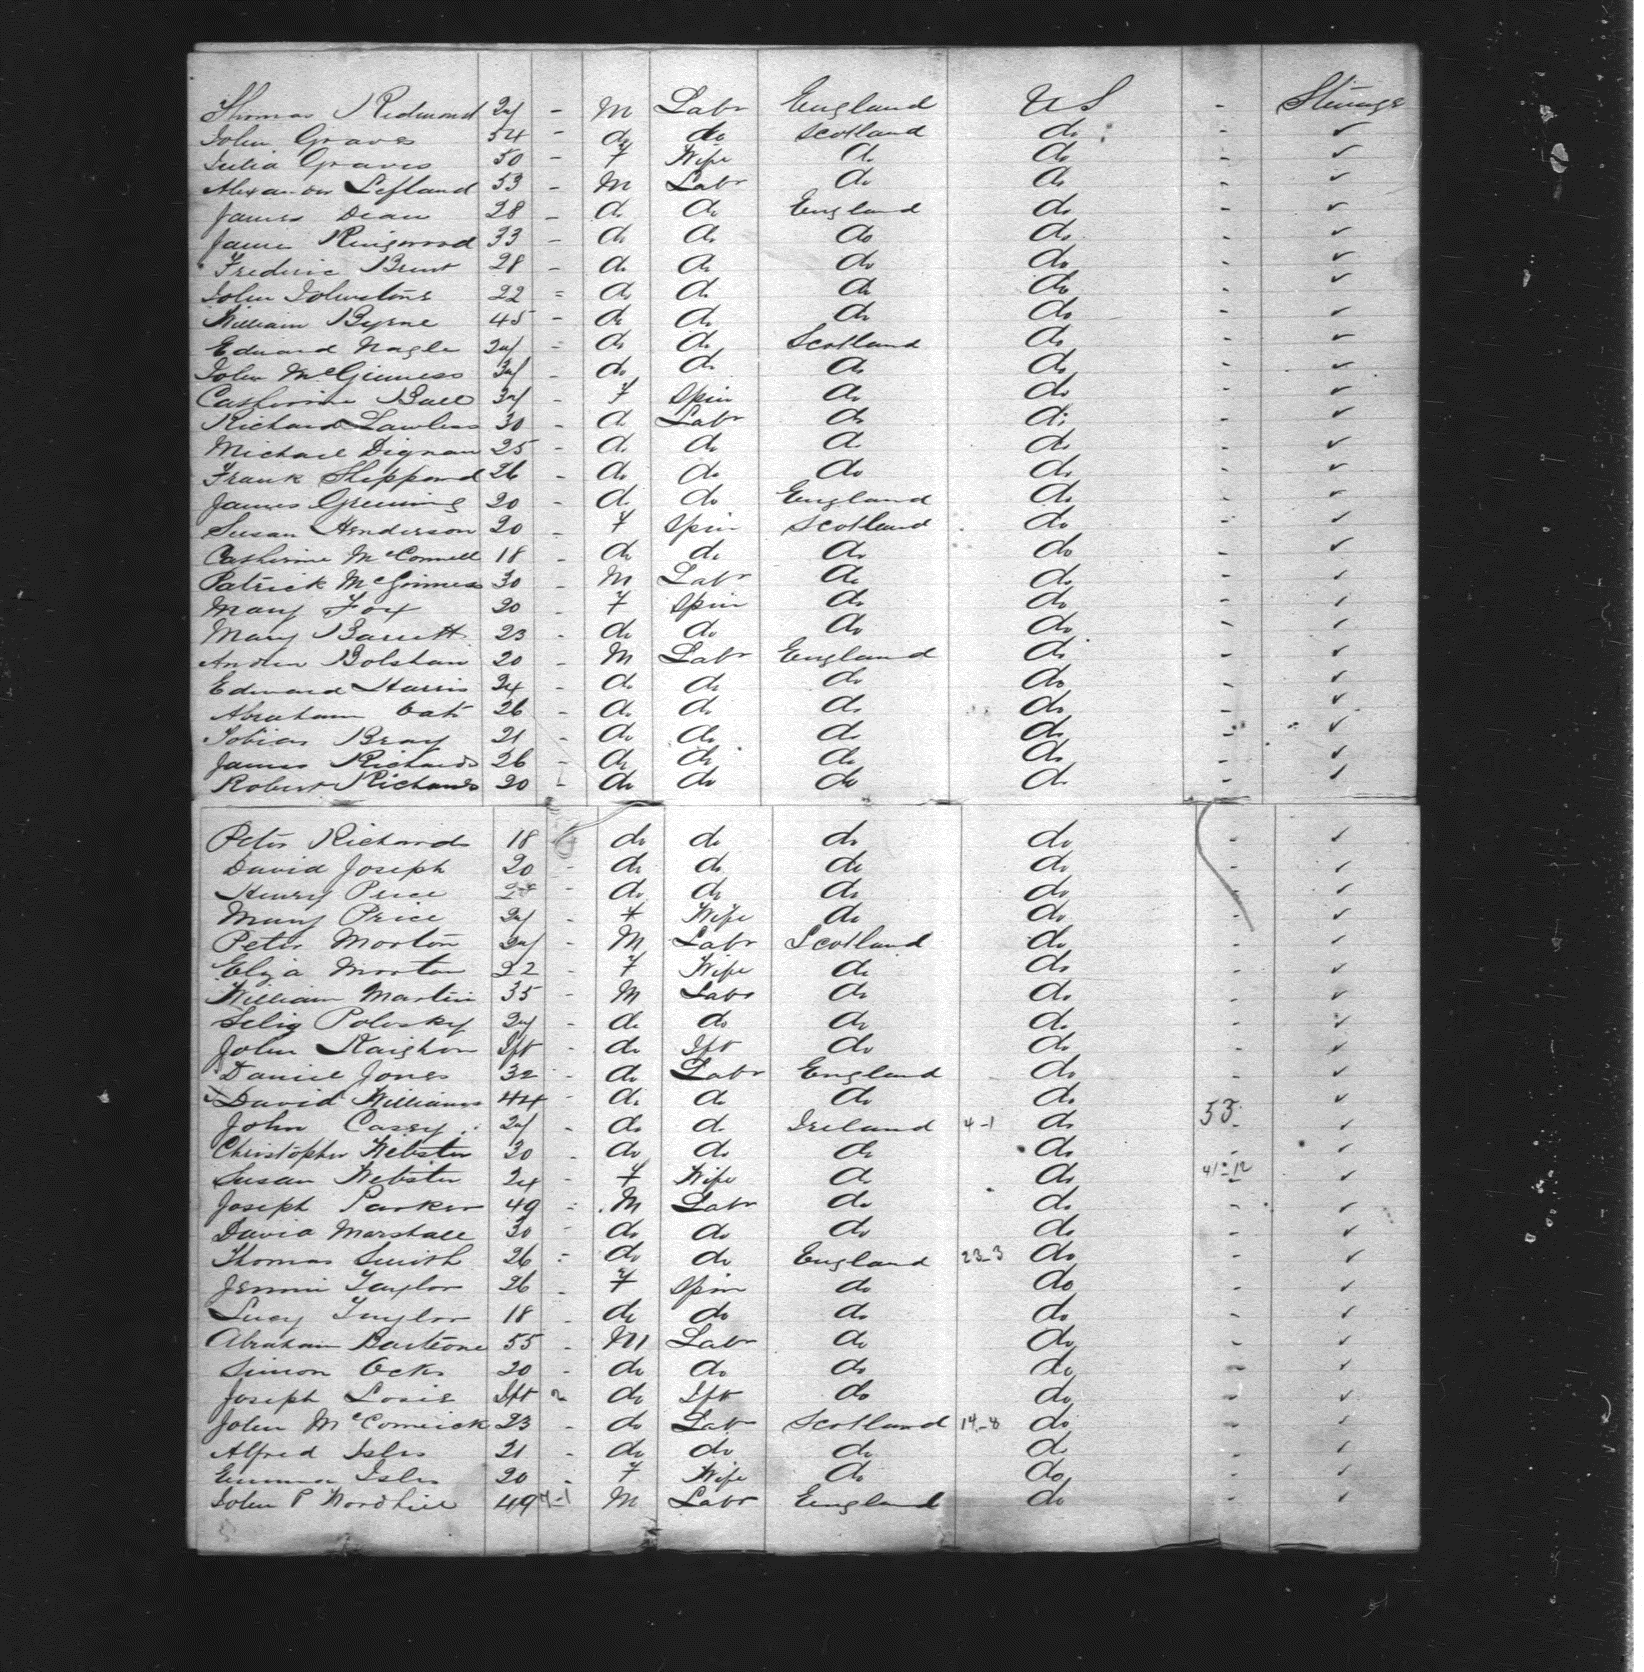 Thomas Redmond 24 - M Labr England U S - Steerage
John Graves 54 - do do Scotland do - ✓
Julia Graves 50 - F Wife do do - ✓
Alexander Lefland 53 - M Labr do do - ✓
James Dean 28 - do do England do - ✓
James Ringwood 33 - do do do do - ✓
Frederic Brent 28 - do do do do - ✓
John Johnstone 22 - do do do do - ✓
William Byrne 45 - do do do do - ✓
Edward Nagle 24 - do do Scotland do - ✓
John McGinness 34 - do do do do - ✓
Catherine Ball 34 - F Spin do do - ✓
Richard Lawless 30 - do Labr do do - ✓
Michael Dignan 25 - do do do do - ✓
Frank Sheppard 26 - do do do do - ✓
James Greening 20 - do do England do - ✓
Susan Henderson 20 - F Spin Scotland do - ✓
Catherine McConnell 18 - do do do do - ✓
Patrick McGinness 30 - M Labr do do - ✓
Mary Fox 20 - F Spin do do - ✓
Mary Barrett 23 - do do do do - ✓
20 - M Labr England do - ✓
Edward Harris 24 - do do do do - ✓
Abraham 26 - do do do do - ✓
Tobias Bray 21 - do do do do - ✓
James Richards 26 - do do do do - ✓
Robert Richards 20 - do do do do - ✓
Peter Richards 18 do do do do - ✓
David Joseph 20 - do do do do - ✓
Henry Price - do do do do - ✓
Mary Price 24 - F Wife do do - ✓
Peter Morton 24 - M Labr Scotland do - ✓
Eliza Morton 22 - F Wife do do - ✓
William Martin 35 - M Labr do do - ✓
Selig Polosky 24 - do do do do - ✓
John Ift - do Ift do do - ✓
Daniel Jones 32 - do Labr England do - ✓
David Williams 44 - do do do do ✓
John Casey 24 - do do Ireland 4-1 do 53 - ✓
Christopher Webster 30 - do do do do - ✓
Susan Webster 24 - F Wife do do 41-12 - ✓
Joseph Parker 49 - M Labr do do - ✓
David Marshall 30 - do do do do - ✓
Thomas Smith 26 - do do England 23-3 do - ✓
Jennie Taylor 26 - F Spin do do - ✓
Lucy Taylor 18 - do do do do - ✓
Abraham 55 - M Labr do do - ✓
Simon Ocks 20 - do do do do - ✓
Joseph Ift do Ift do do - ✓
John McCormick 23 - do Labr Scotland 14-8 do - ✓
Alfred Isles 21 - do do do do - ✓
Emma Isles 20 - F Wife do do - ✓
John P Wordhill 49 4-1 M Labr England do - ✓